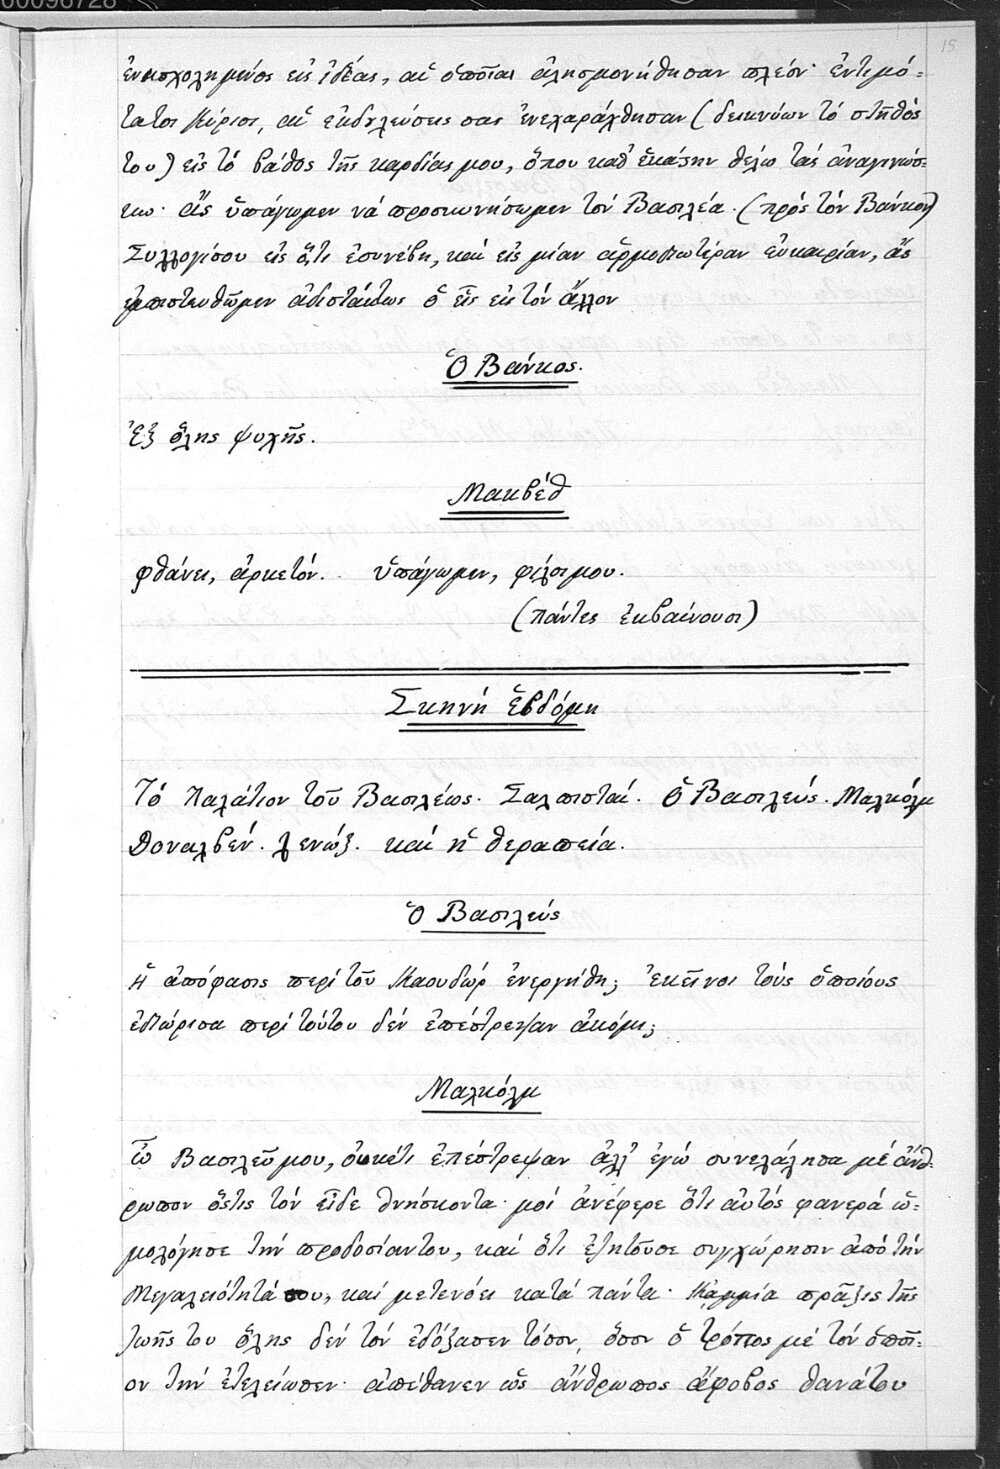 00096728
15
ἐνησχολημένος εἰς ἰδέας, αἱ ὁποῖαι ἐλησμονήθησαν πλέον· ἐντιμό=
τατοι Κύριοι, αἱ ἐκδουλεύσεις σας ἐνεχαράχθησαν (δεικνύων τὸ στῆθός
του) εἰς τὸ βάθος τῆς καρδίας μου, ὅπου καθ' ἑκάστην θέλω τὰς ἀναγινώσ=
κω· ἂς ὑπάγωμεν νὰ προσκυνήσωμεν τὸν Βασιλέα. (πρὸς τὸν Βάνκον)
Συλλογίσου εἰς ὅ,τι ἐσυνέβη, καὶ εἰς μίαν ἁρμοδιωτέραν εὐκαιρίαν, ἂς
ἐμπιστευθῶμεν ἀδιστάκτως ὁ εἷς εἰς τὸν ἄλλον
Ὁ Βάνκος.
Ἐξ ὅλης ψυχῆς.
Μακβέθ
φθάνει, ἀρκετόν. ὑπάγωμεν, φίλοι μου.
(πάντες ἐκβαίνουσι)
Σκηνή ἑβδόμη
Τὸ παλάτιον τοῦ Βασιλέως. Σαλπισταί. Ὁ Βασιλεύς. Μαλκόλμ
Δοναλβέν. Λενώξ. καὶ ἡ θεραπεία.
Ὁ Βασιλεύς
Ἡ ἀπόφασις περὶ τοῦ Καουδώρ ἐνεργήθη; ἐκεῖνοι τοὺς ὁποίους
ἐδιώρισα περὶ τούτου δὲν ἐπέστρεψαν ἀκόμη;
Μαλκόλμ
ὦ Βασιλεῦ μου, οὐκέτι ἐπέστρεψαν ἀλλ' ἐγὼ συνελάλησα μὲ ἄνθ=
ρωπον ὅστις τὸν εἶδε θνήσκοντα· μοὶ ἀνέφερε ὅτι αὐτὸς φανερὰ ὡ=
μολόγησε τὴν προδοσίαν του, καὶ ὅτι ἐζητοῦσε συγχώρησιν ἀπὸ τὴν
Μεγαλειότητά σου, καὶ μετενόει κατὰ πάντα· Καμμία πρᾶξις τῆς
ζωῆς του ὅλης δὲν τὸν ἐδόξασεν τόσον, ὅσον ὁ τρόπος μὲ τὸν ὁποῖ=
ον τὴν ἐτελείωσεν· ἀπέθανεν ὡς ἄνθρωπος ἄφοβος θανάτου